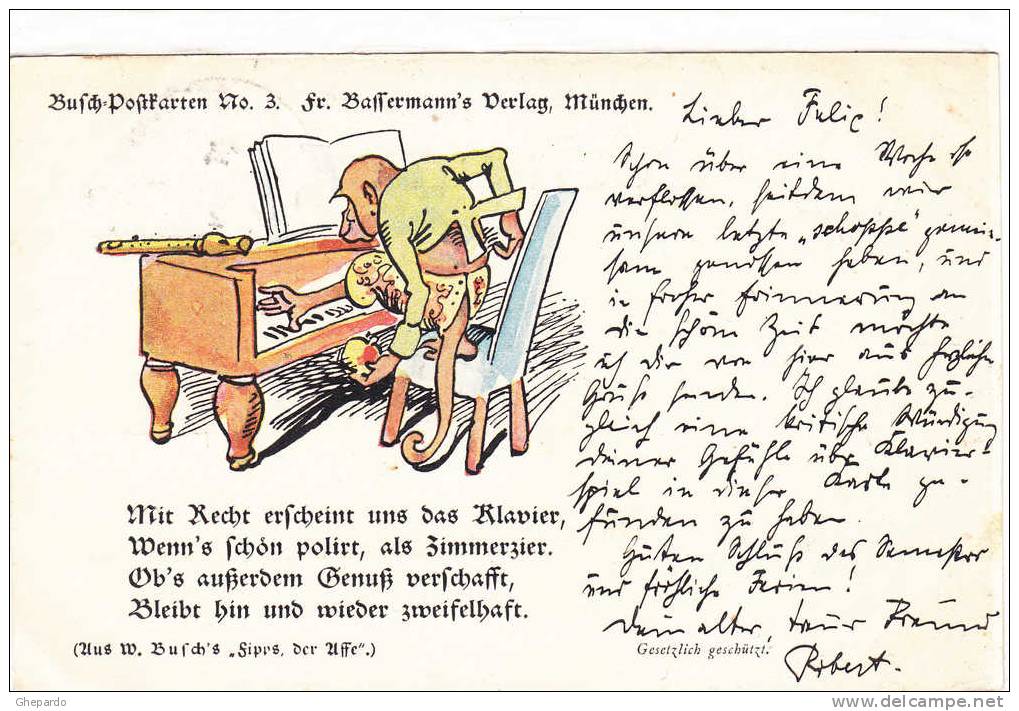 Busch-Postkarten No. 3. Fr. Bassermann's Verlag, München.
Lieber Felix!
Schon über eine Woche ist
verflossen, seitdem wir
unsere letzte „Schoppe" gemein-
sam genossen haben, und
in froher Erinnerung an
die schöne Zeit möchte
ich dir von hier aus herzlichen
Gruß senden. Ich glaube zu-
gleich eine kritische Würdigung
deiner Gefühle über Klavier-
spiel in dieser Karte ge-
funden zu haben.
Guten Schluß des Semester
und fröhliche Ferien!
Dein alter, treuer Freund
Robert.
Mit Recht erscheint uns das Klavier,
Wenn's schön polirt, als Zimmerzier.
Ob's außerdem Genuß verschafft,
Bleibt hin und wieder zweifelhaft.
(Aus W. Busch's „Fipps, der Affe".)
Gesetzlich geschützt.
Ghepardo
delcampe.net